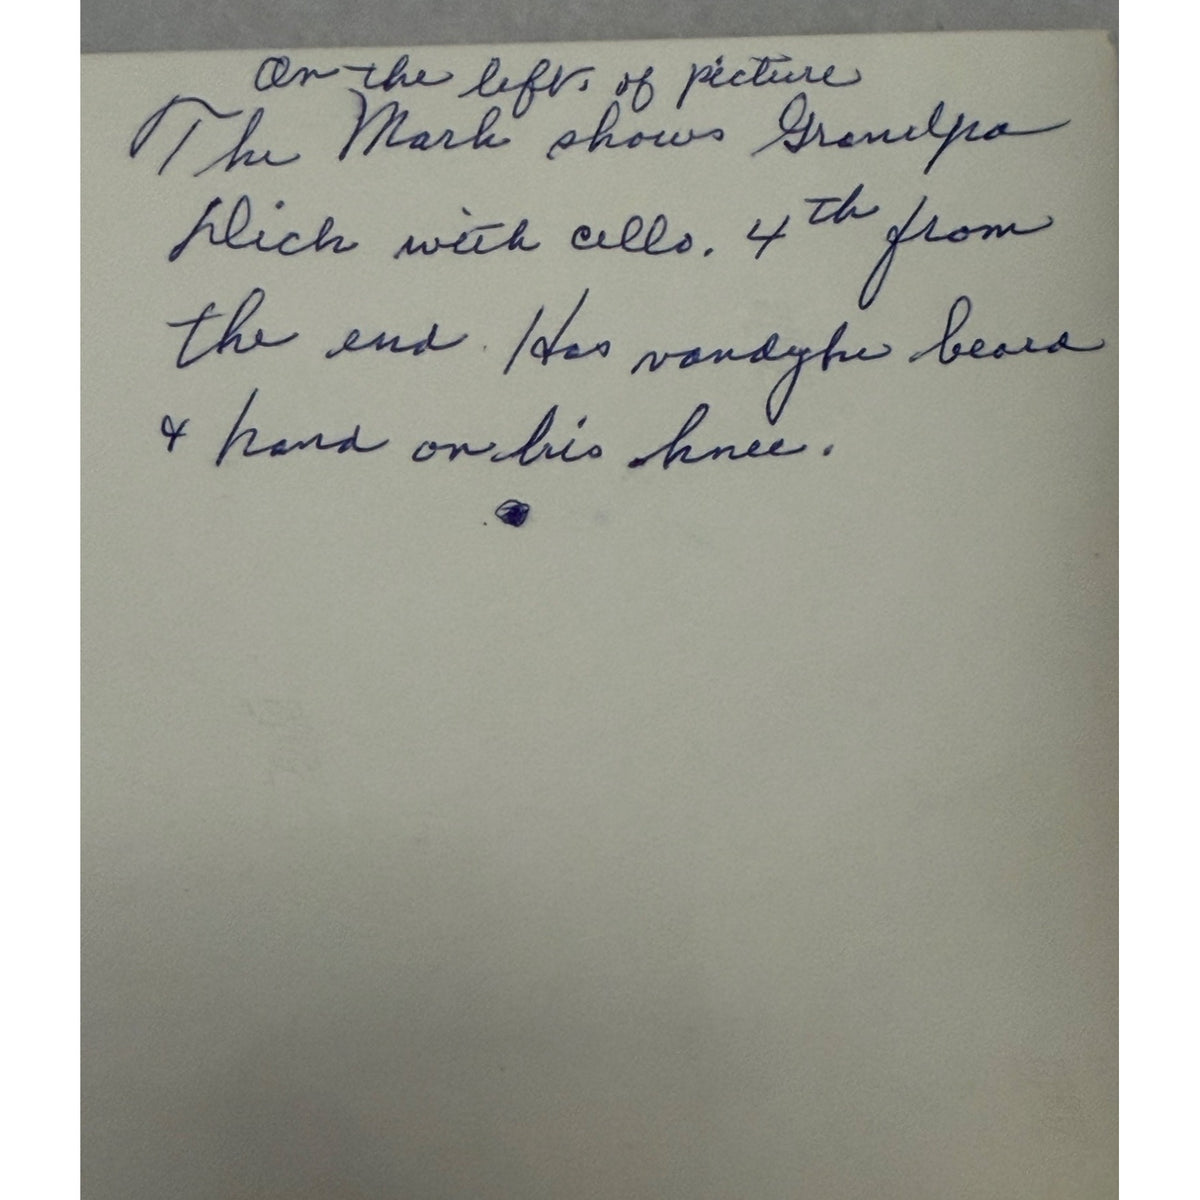 On the left. of picture
The Mark shows Grandpa
Dick with cello. 4th from
the end. Has vandyke beard
& hand on his knee.